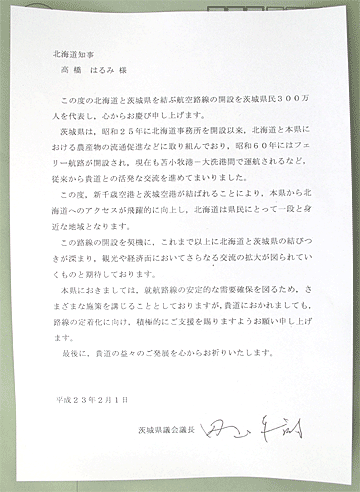 北海道知事
高橋　はるみ　様
この度の北海道と茨城県を結ぶ航空路線の開設を茨城県民３００万
人を代表し，心からお慶び申し上げます。
茨城県は，昭和２５年に北海道事務所を開設以来，北海道と本県に
おける農産物の流通促進などに取り組んでおり，昭和６０年にはフェ
リー航路が開設され，現在も苫小牧港ー大洗港間で運航されるなど，
従来から貴道との活発な交流を進めてまいりました。
この度，新千歳空港と茨城空港が結ばれることにより，本県から北
海道へのアクセスが飛躍的に向上し，北海道は県民にとって一段と身
近な地域となります。
この路線の開設を契機に，これまで以上に北海道と茨城県の結びつ
きが深まり，観光や経済面においてさらなる交流の拡大が図られてい
くものと期待しております。
本県におきましては，就航路線の安定的な需要確保を図るため，さ
まざまな施策を講じることとしておりますが，貴道におかれましても，
路線の定着化に向け，積極的にご支援を賜りますようお願い申し上げ
ます。
最後に，貴道の益々のご発展を心からお祈りいたします。
平成２３年２月１日
茨城県議会議長